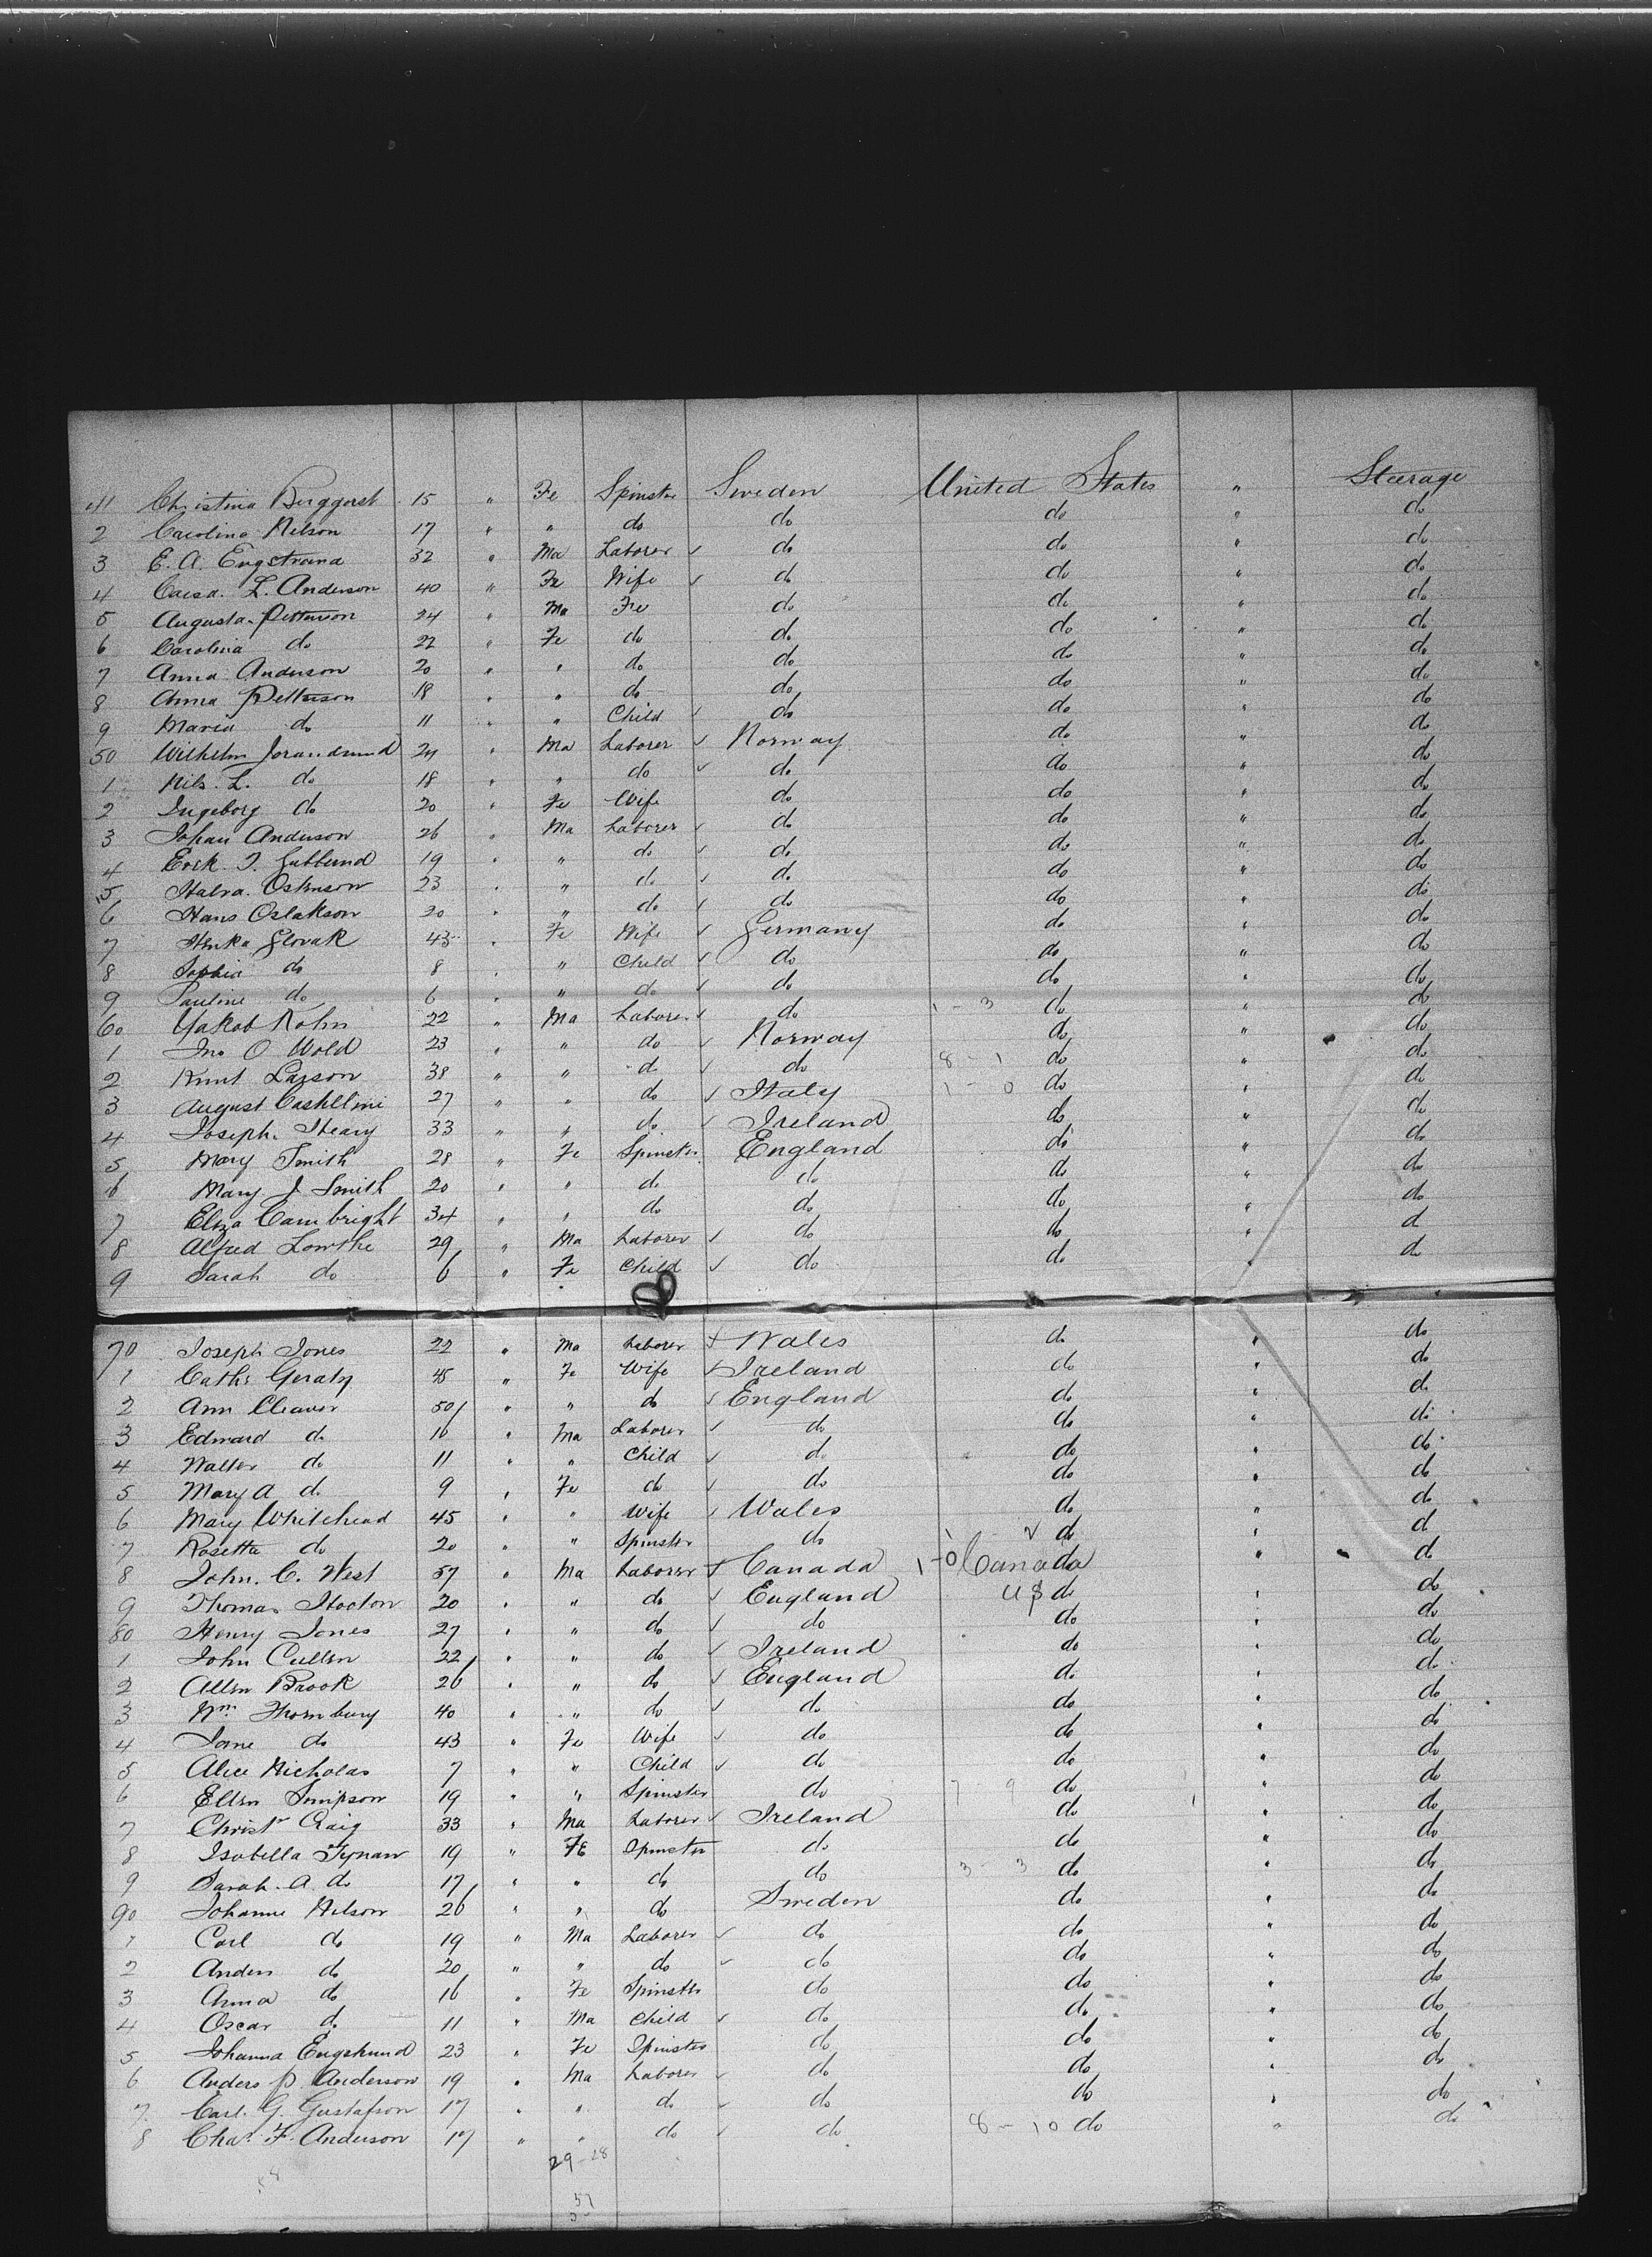 41 Christina Berggorst 15 " Fe Spinster Sweden United States " Steerage
2 Carolina Nelson 17 " " do do do " do
3 E. A. Engstrand 32 " Ma Laborer ✓ do do " do
4 Caisa. L. Anderson 40 " Fe Wife ✓ do do " do
5 Augusta Petterson 24 " Ma Fe do do " do
6 Carolina do 22 " Fe do do do " do
7 Anna Anderson 20 " " do do do " do
8 Anna Petterson 18 " " do do do " do
9 Maria do 11 " " Child ✓ do do " do
50 Wilhelm 24 " Ma Laborer ✓ Norway do " do
1 Nils. L. do 18 " " do ✓ do do " do
2 Ingeborg do 20 " Fe Wife do do " do
3 Johan Anderson 26 " Ma Laborer ✓ do do " do
4 Erik. 19 " " do ✓ do do " do
5 23 " " do ✓ do do " do
6 Hans Oslakson 20 " " do ✓ do do " do
7 Slovak 45 " Fe Wife ✓ Germany do " do
8 Sophia do 8 " " Child ✓ do do " do
9 Pauline do 6 " " do ✓ do do " do
60 Yakob Rohn 22 " Ma Laborer ✓ do 1 - 3 do " do
1 Jno O Wold 23 " " do ✓ Norway do " do
2 Knut Larson 38 " " do ✓ do 8 - 1 do " do
3 August Castellini 27 " " do ✓ Italy 1 - 0 do " do
4 Joseph Heary 33 " " do ✓ Ireland do " do
5 Mary Smith 28 " Fe Spinster England do " do
6 Mary J Smith 20 " " do do do " do
7 Eliza Cambright 34 " " do do do " do
8 Alfred Lowthe 29 " Ma Laborer ✓ do do " do
9 Sarah do 6 " Fe Child ✓ do do " do
70 Joseph Jones 22 " Ma Laborer ✓ Wales do " do
1 Cathe Geraty 45 " Fe Wife ✓ Ireland do " do
2 Ann Cleaver 50 " " do ✓ England do " do
3 Edward do 16 " Ma Laborer ✓ do do " do
4 Walter do 11 " " Child ✓ do do " do
5 Mary A do 9 " Fe do ✓ do do " do
6 Mary Whitehead 45 " " Wife ✓ Wales do " do
7 Rosetta do 20 " " Spinster do ✓ do " do
8 John. C. West 57 " Ma Laborer ✓ Canada 1-0 Canada " do
9 Thomas Stocton 20 " " do ✓ England US do " do
80 Henry Jones 27 " " do ✓ do do " do
1 John Cullen 22 " " do ✓ Ireland do " do
2 Allen Brook 26 " " do ✓ England do " do
3 Wm Thornbury 40 " " do ✓ do do " do
4 Jane do 43 " Fe Wife ✓ do do " do
5 Alice Nicholas 7 " " Child ✓ do do " do
6 Ellen Simpson 19 " " Spinster do 7 - 9 do " do
7 Christr Craig 33 " Ma Laborer ✓ Ireland do " do
8 Isabella Tynan 19 " FE Spinster do do " do
9 Sarah. A. do 17 " " do do 3 - 3 do " do
90 Johanne Nelson 26 " " do Sweden do " do
1 Carl do 19 " Ma Laborer ✓ do do " do
2 Anders do 20 " " do ✓ do do " do
3 Anna do 16 " Fe Spinster do do " do
4 Oscar do 11 " Ma Child ✓ do do " do
5 Johanna Engshund 23 " Fe Spinster do do " do
6 Anders P. Anderson 19 " Ma Laborer ✓ do do " do
7 Carl. G. Gustafson 17 " " do ✓ do do " do
8 Chas. F. Anderson 17 " " do ✓ do 8 - 10 do " do
29-28
57